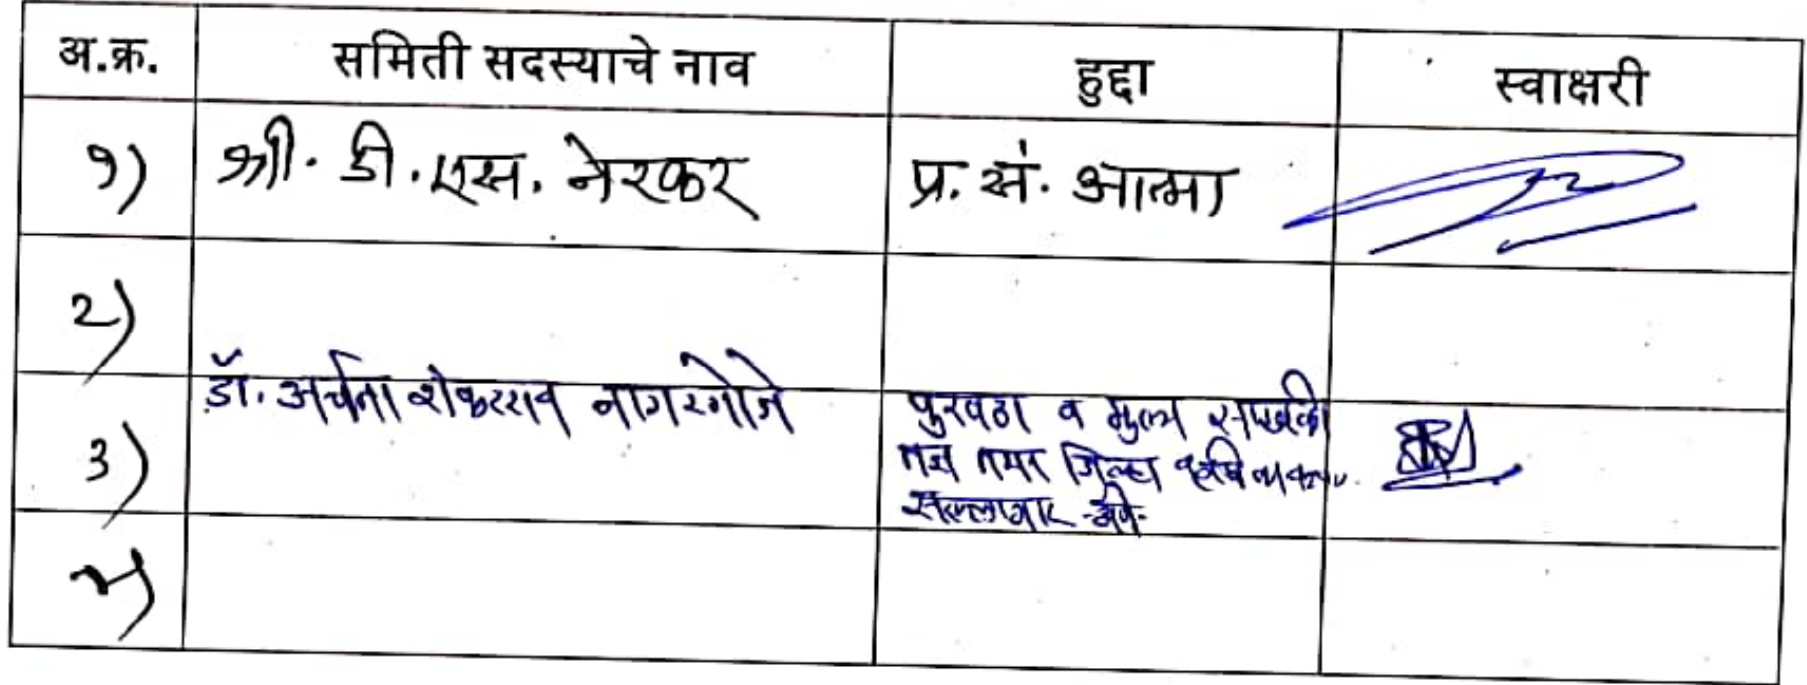 अ.क्र. समिती सदस्याचे नाव हुद्दा स्वाक्षरी
१) श्री. डी. एस. नेरकर प्र. सं. आत्मा
२)
डॉ. अर्चना शंकरराव नागरगोजे
३) पुरवठा व मुल्य साखळी
तज्ञ जिल्हा कृषि
सल्लागार
४)